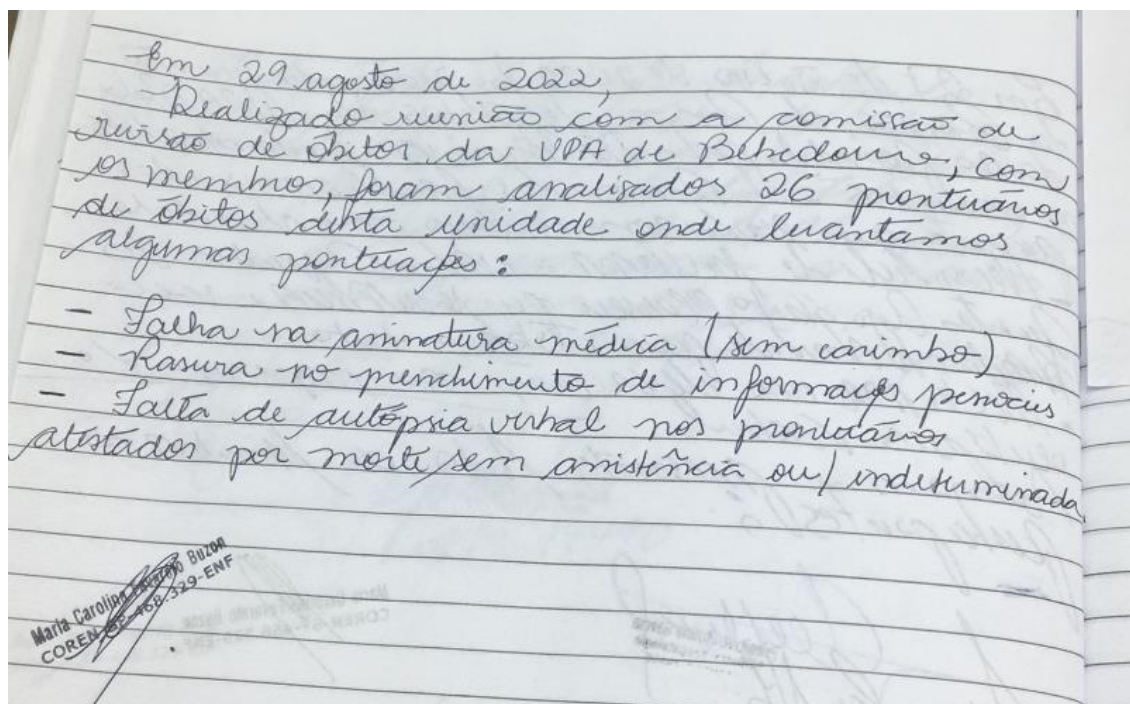 Em 29 agosto de 2022,
- Realizado reunião com a comissão de
revisão de óbitos da UPA de Bebedouro, com
os membros, foram analisados 26 prontuários
de óbitos desta unidade onde levantamos
algumas pontuações:
- Falha na assinatura médica (sem carimbo)
- Rasura no preenchimento de informações pessoais
- Falta de autópsia verbal nos prontuários
atestados por morte sem assistência ou/ indeterminada.
Maria Carolina Buzon
COREN-SP-468.329-ENF